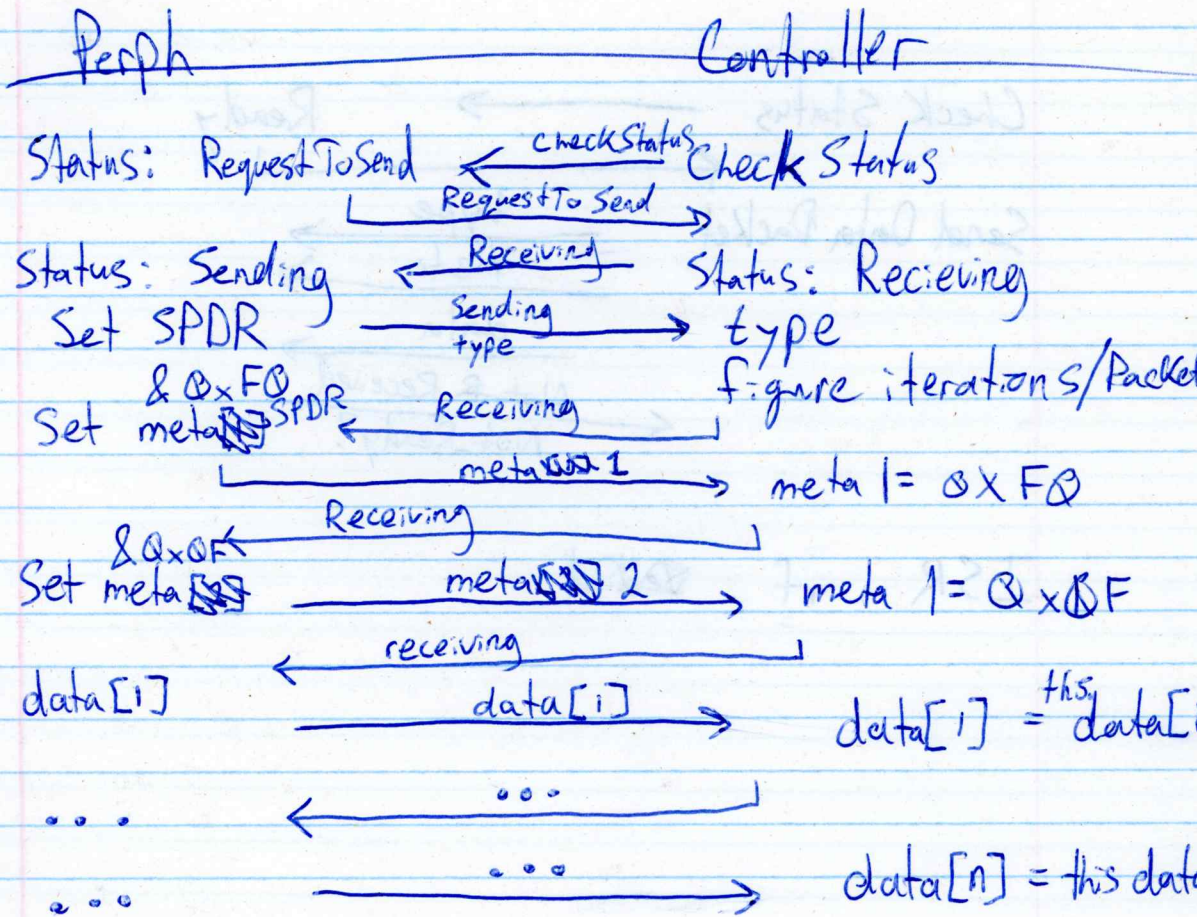 Perph Controller
Status: RequestToSend checkStatus Check Status
RequestTo Send
Status: Sending Receiving Status: Recieving
Set SPDR Sending type
type figure iterations/Packet
& 0xF0
Set meta SPDR Receiving
meta 1 meta 1 = 0XF0
Receiving
& 0x0F
Set meta meta 2 meta 1 = 0x0F
receiving
data[i] data[i] data[i] = this data[i
... ...
... ... data[n] = this data